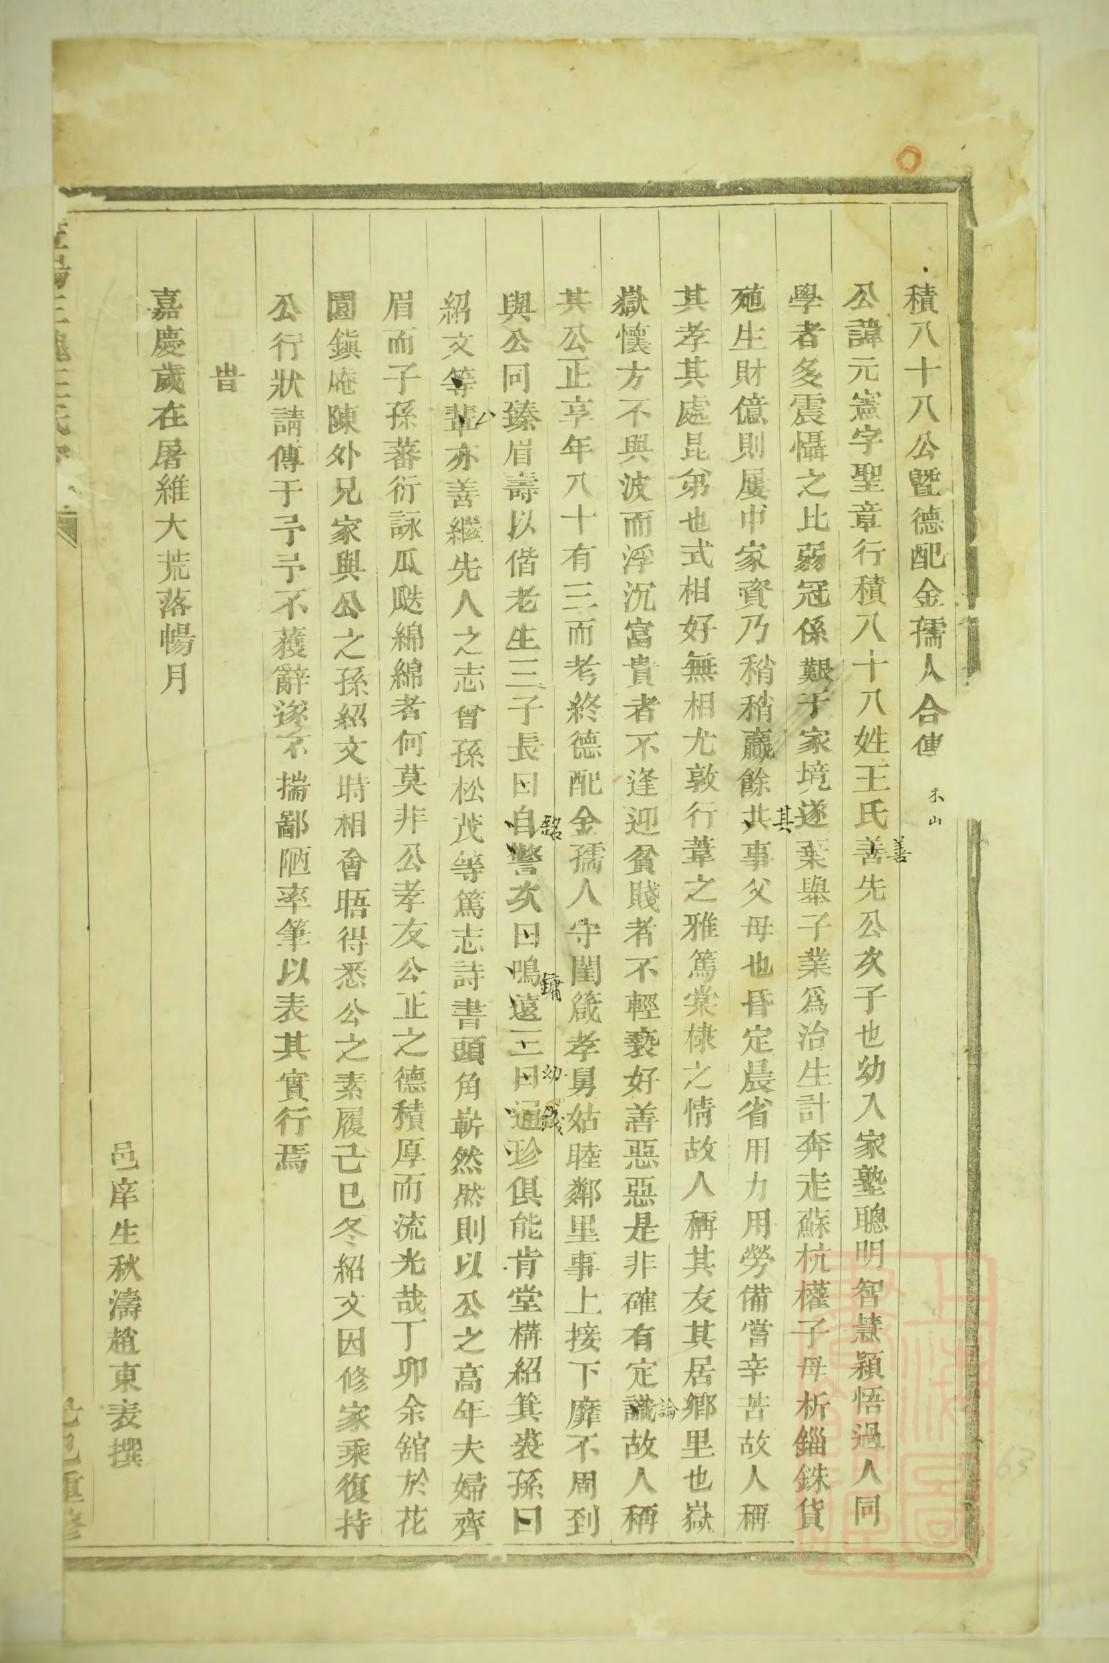 積八十八公暨德配金孺人合傳
公諱元憲字聖章行積八十八姓王氏善先公次子也幼入家塾聰明智慧穎悟過人同
學者多震懾之比弱冠係艱于家境遂棄舉子業爲治生計奔走蘇杭權子母析錙銖貨
殖生財億則屢中家資乃稍稍贏餘共事父母也昏定晨省用力用勞備嘗辛苦故人稱
其孝其處昆弟也式相好無相尤敦行葦之雅篤棠棣之情故人稱其友其居鄉里也嶽
嶽懷方不與波而浮沉富貴者不逢迎貧賤者不輕褻好善惡惡是非確有定識故人稱
其公正享年八十有三而考終德配金孺人守閨箴孝舅姑睦鄰里事上接下靡不周到
與公同臻眉壽以偕老生三子長曰自警次曰鳴遠三曰通珍俱能肯堂構紹箕裘孫曰
紹文等輩亦善繼先人之志曾孫松茂等篤志詩書頭角嶄然然則以公之高年夫婦齊
眉而子孫蕃衍詠瓜瓞綿綿者何莫非公孝友公正之德積厚而流光哉丁卯余舘於花
園鎮庵陳外兄家與公之孫紹文時相會晤得悉公之素履己巳冬紹文因修家乘復持
公行狀請傳于予予不獲辭遂不揣鄙陋率筆以表其實行焉
旹
嘉慶歲在屠維大荒落暢月
邑庠生秋濤趙東表撰
己巳重修
善
其
論
銘
鏞
幼
公